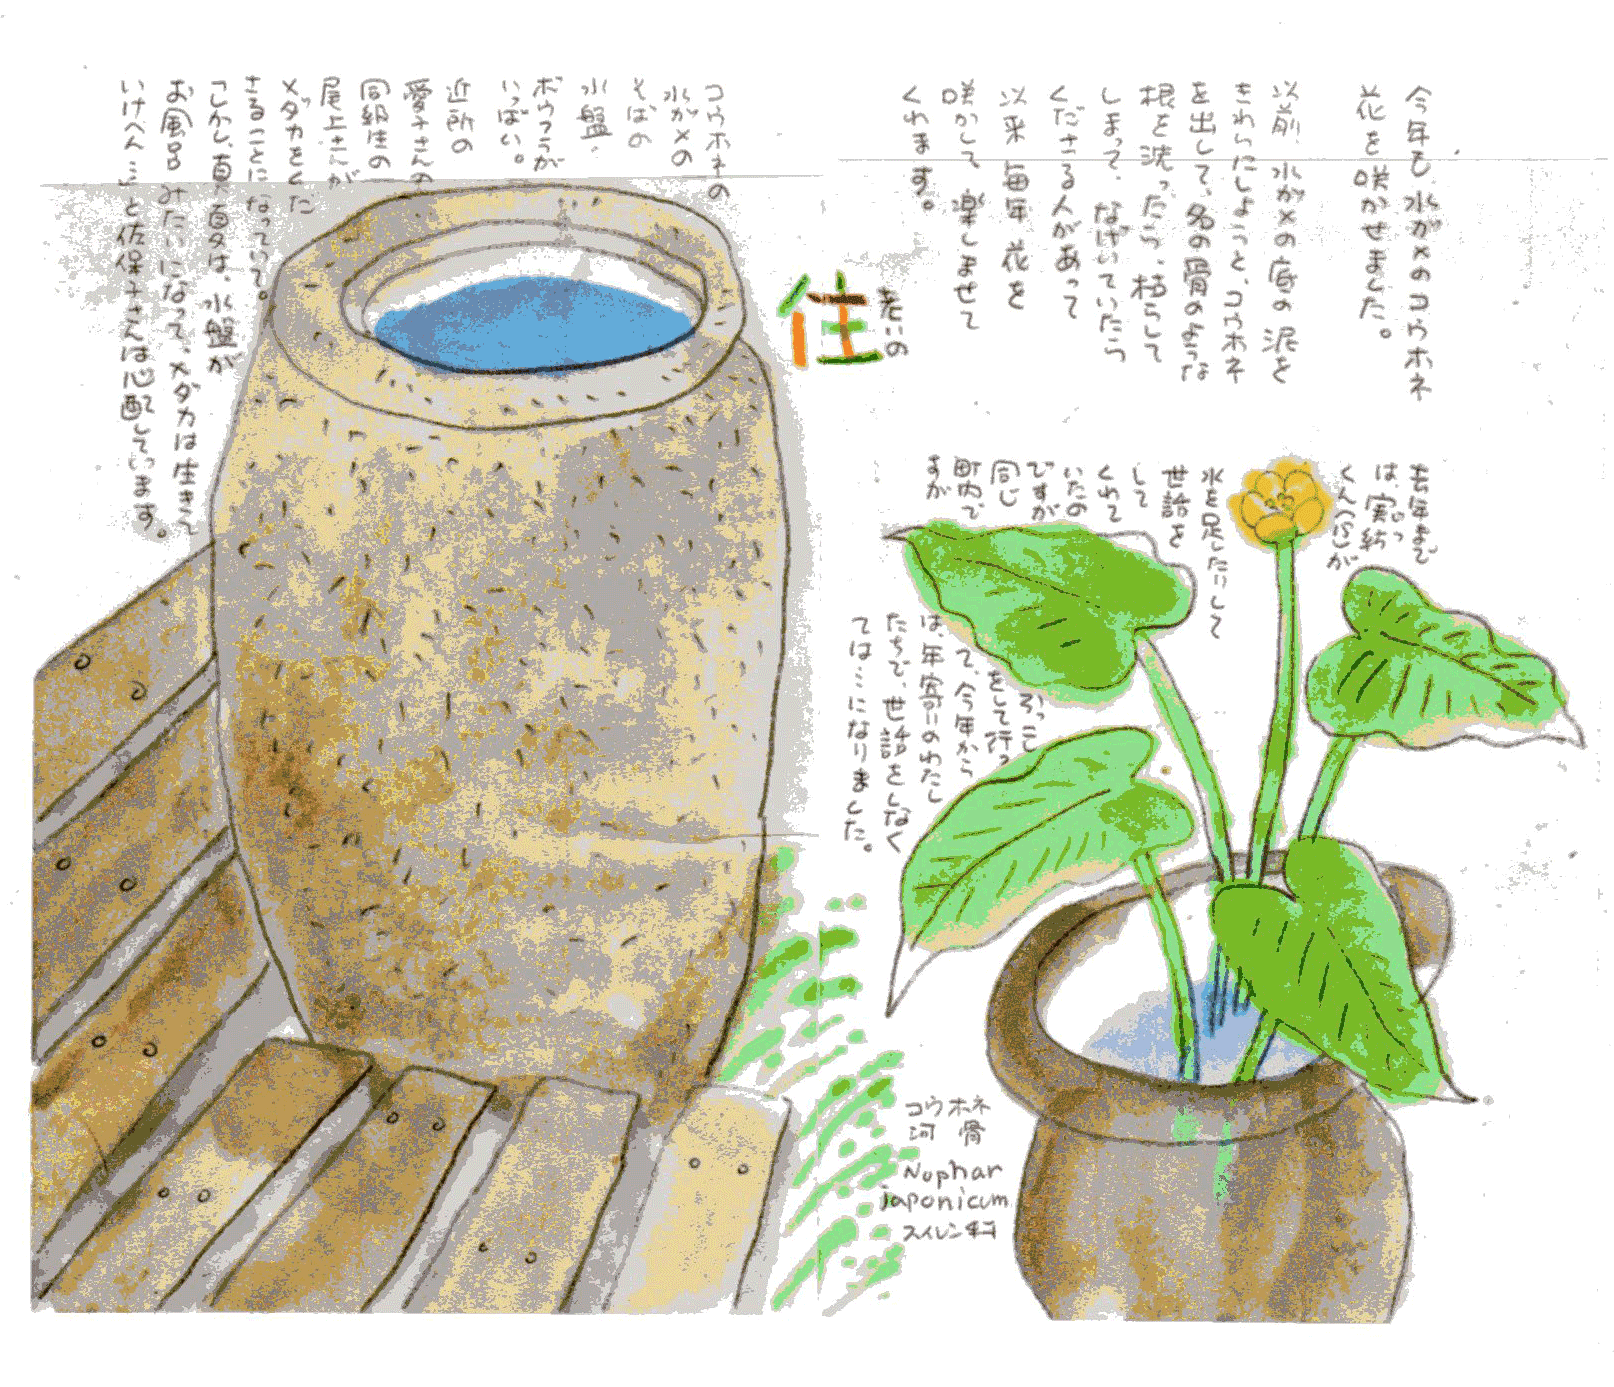 今年も、水がメのコウホネ
花を咲かせました。
以前、水がメの底の泥を
きれいにしようと、コウホネ
を出して、名の骨のような
根を洗ったら、枯らして
しまって、なげいていたら
くださる人があって
以来 毎年 花を
咲かして 楽しませて
くれます。
老いの
住
去年まで
は 実紗
くん(心)が
水を足したりして
世話を
して
くれて
いたの
ですが
同じ
町内で
すが
ひっこし
をして行っ
て、今年から
は、年寄りのわたし
たちで、世話をしなく
ては…になりました。
コウホネの
水がメの
そばの
水盤・
ボウフラが
いっぱい。
近所の
愛子さんの
同級生の
尾上さんが
メダカをくだ
さることになっていて。
「しかし、真夏は、水盤が
お風呂みたいになって、メダカは生きて
いけへん…」と佐保子さんは心配しています。
コウホネ
河骨
Nuphar
japonicum
スイレン科